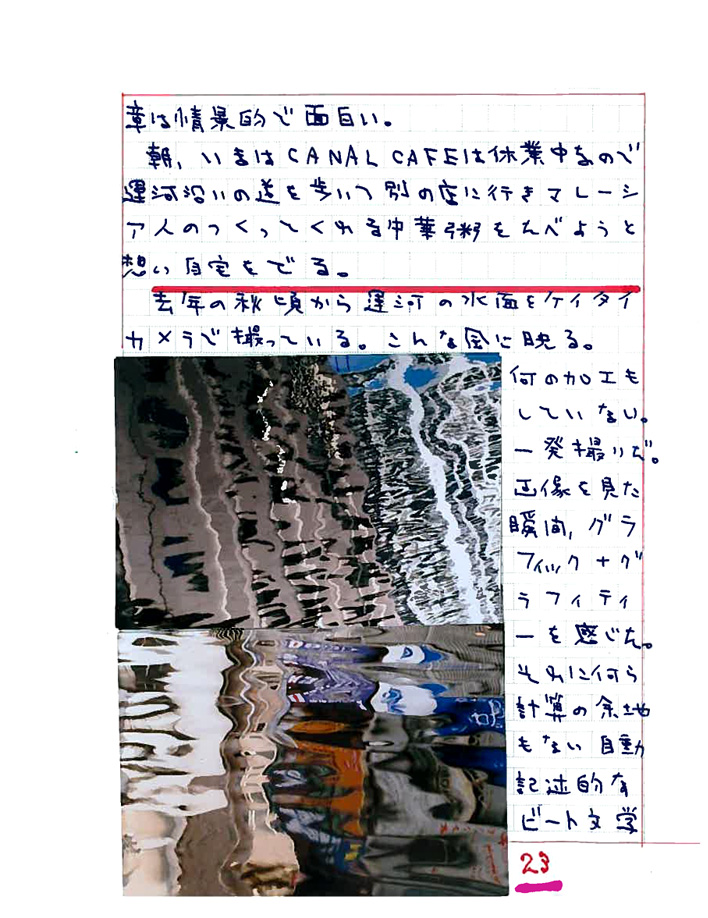 章は情景的で面白い。
朝、いまはCANAL CAFEは休業中なので
運河沿いの道を歩いて別の店に行きマレーシ
ア人のつくってくれる中華粥をたべようと
想い自宅をでる。
去年の秋頃から運河の水面をケイタイ
カメラで撮っている。こんな風に映る。
何の加工も
していない。
一発撮りだ。
画像を見た
瞬間、グラ
フィック+グ
ラフィティ
ーを感じた。
それに何ら
計算の余地
もない自動
記述的な
ビート文学
23